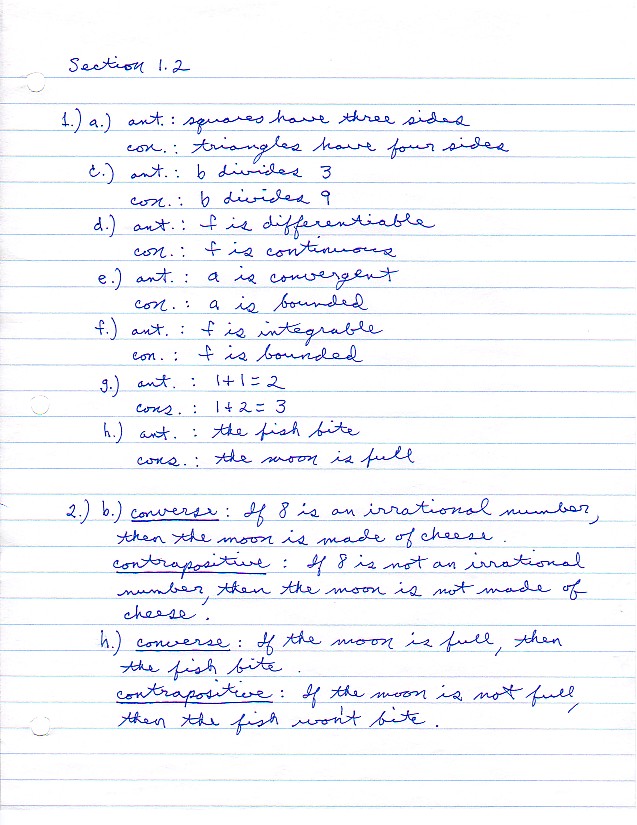 Section 1.2
1.) a.) ant. : squares have three sides
con. : triangles have four sides
c.) ant. : b divides 3
con. : b divides 9
d.) ant. : f is differentiable
con. : f is continuous
e.) ant. : a is convergent
con. : a is bounded
f.) ant. : f is integrable
con. : f is bounded
g.) ant. : 1+1=2
cons. : 1+2=3
h.) ant. : the fish bite
cons. : the moon is full
2.) b.) converse : If 8 is an irrational number,
then the moon is made of cheese.
contrapositive : If 8 is not an irrational
number, then the moon is not made of
cheese.
h.) converse : If the moon is full, then
the fish bite.
contrapositive : If the moon is not full,
then the fish won't bite.